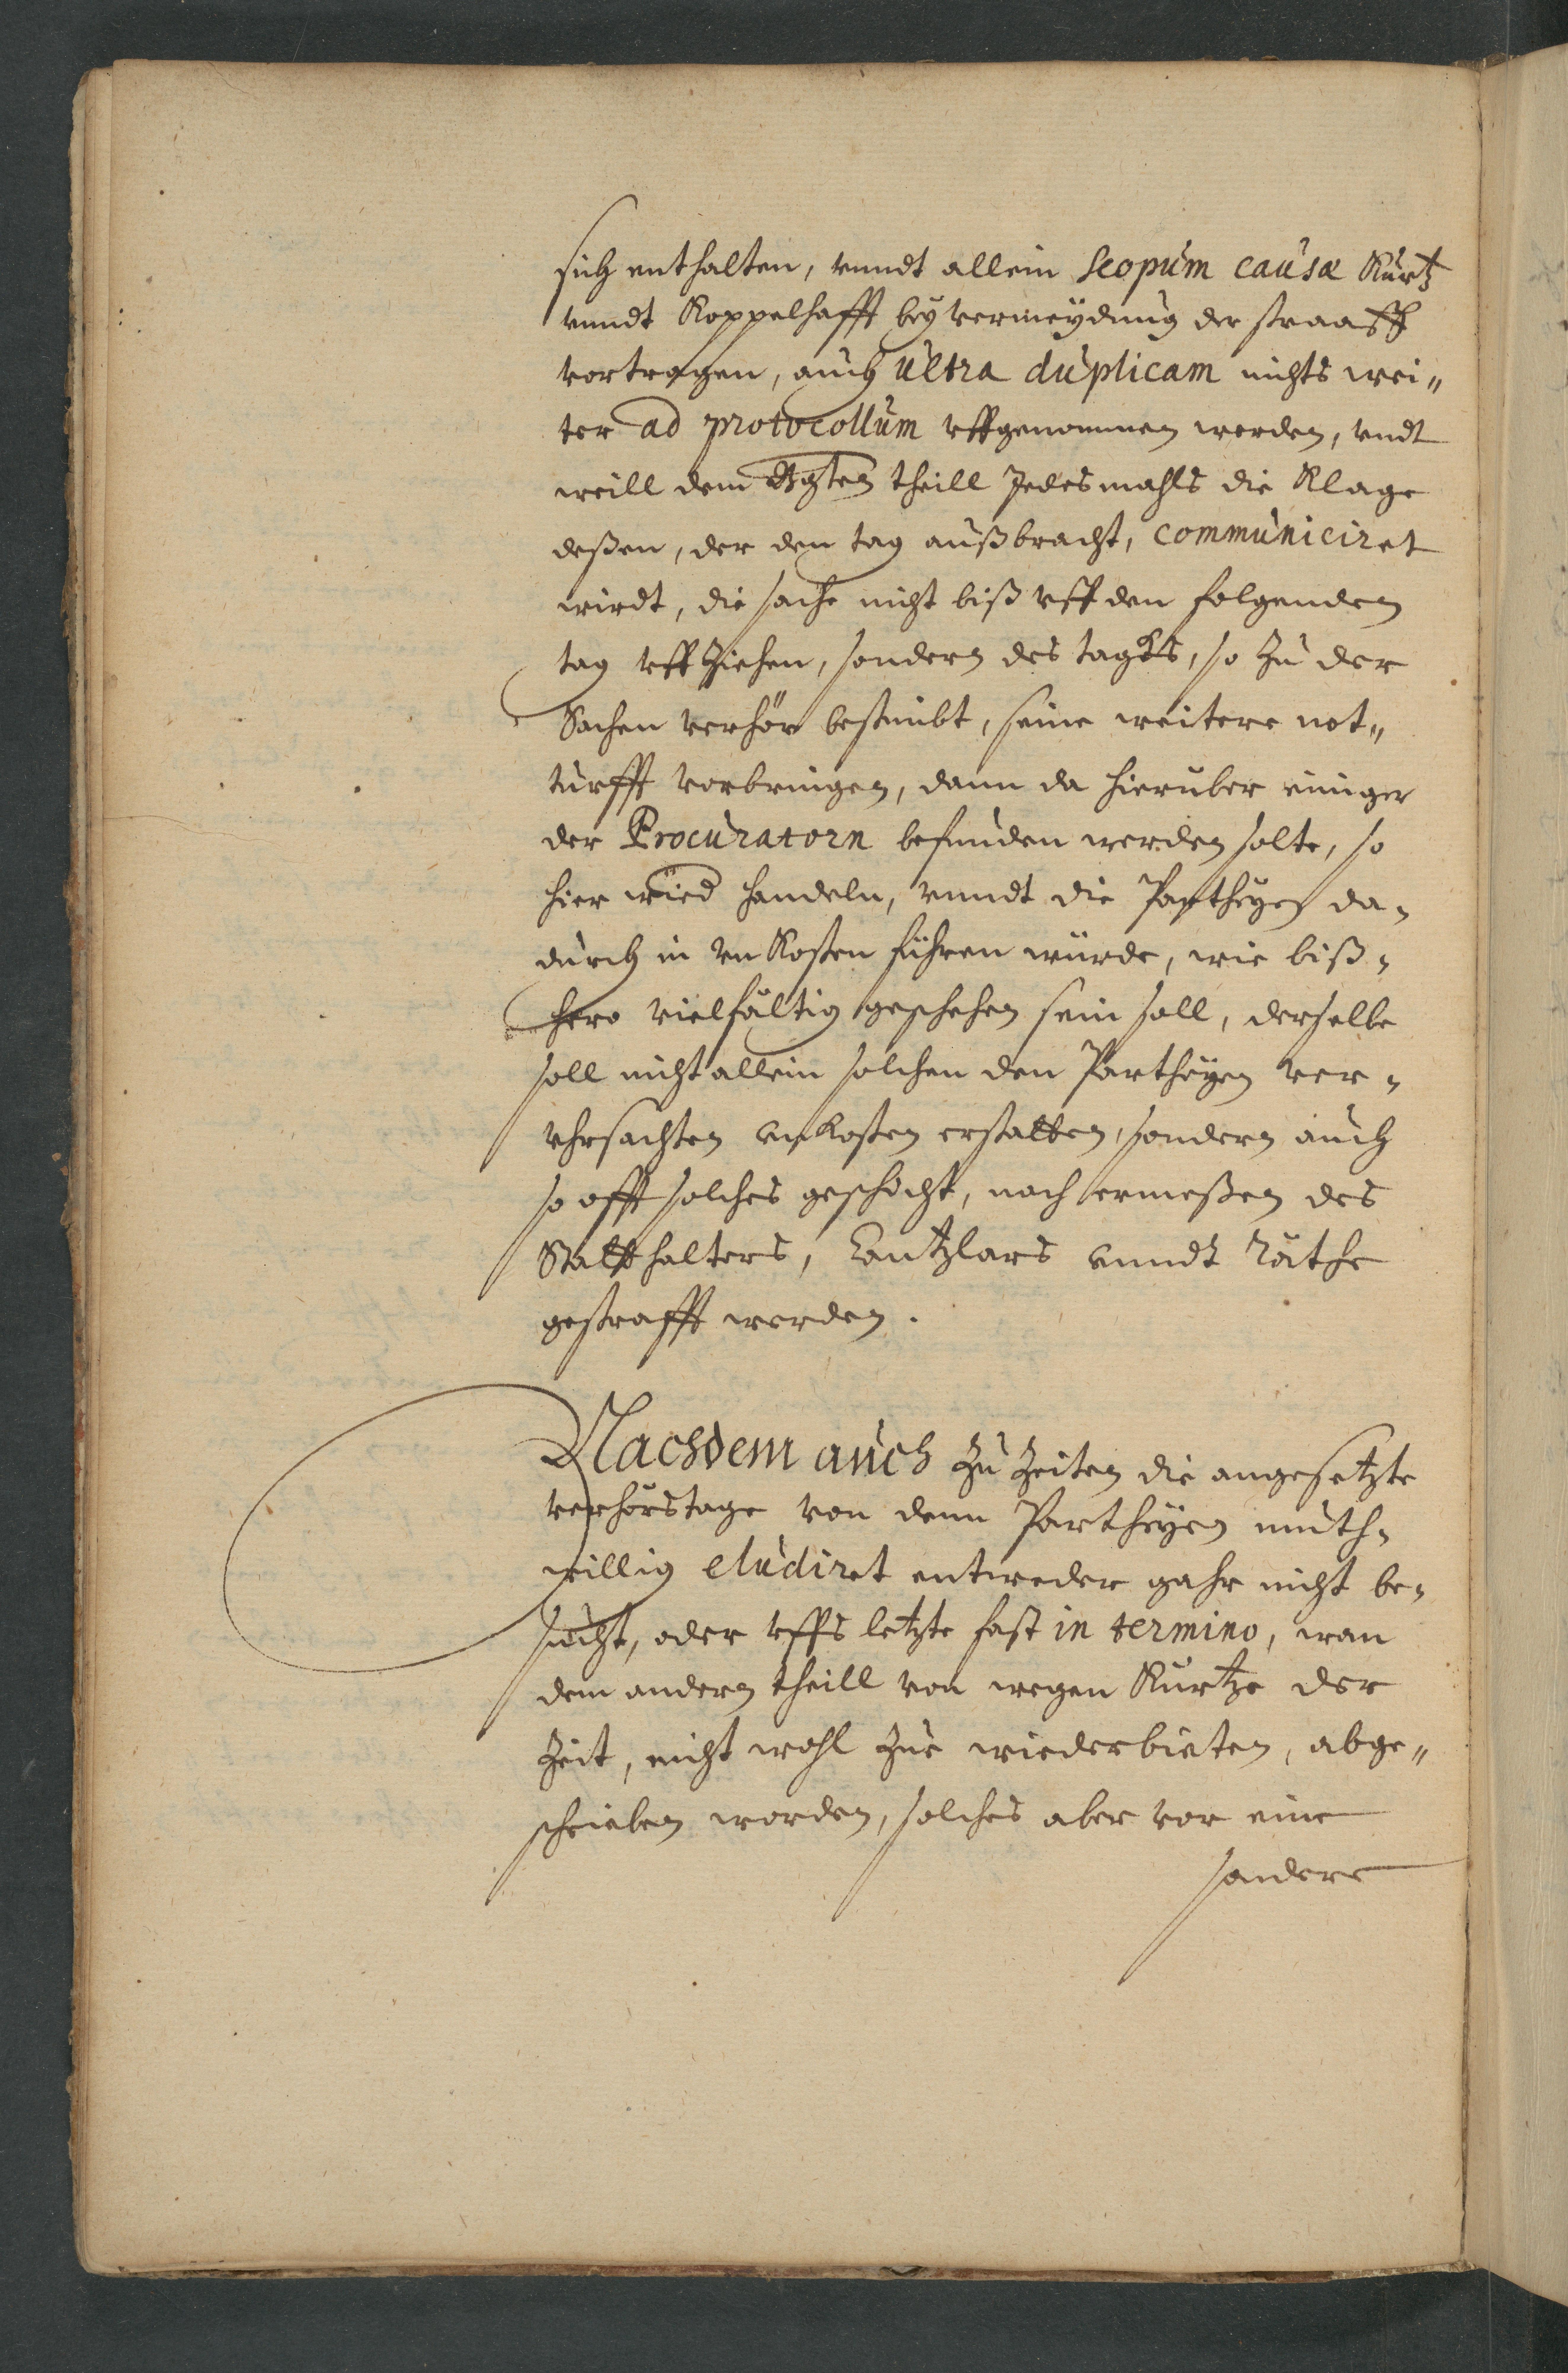 sich enthalten, vnndt allein Scopum causæ Kurtz
vnndt Koppelhafft bey vermeydung der straaff
vortragen, auch ultra duplicam nichts wei„
ter ad protocollum vffgenommen werden, vndt
weill dem theill Jedesmahls die Klage
deßen, der den tag außbracht, communiciret
wirdt, die sache nicht biß vff den folgenden
tag vffziehen, sondern des tagks, so zu der
Sachen verhör bestimbt, seine weitere not„
turfft vorbringen, dann da hieruber einiger
der Procuratorn befunden werden solte, so
hier wied handeln, vnndt die Partheyen da-
durch in vnKosten führen würde, wie biß-
hero vielfältig geschehen sein soll, derselbe
soll nicht allein solchen den Partheyen ver-
vhrsachten vnkosten erstatten, sondern auch
so offt solches geschicht, nach ermeßen des
Stattthalters, Cantzlars vnndt Räthe
gestrafft werden.
Nachdem auch zu Zeiten die angesetzte
verhörstage von denn Partheyen muth-
willig eludiret entweder gahr nicht be-
sucht, oder vffs letzte fast in termino, wan
dem andern theill von wegen Kurtze der
Zeit, nicht wohl zue wiederbieten, abge„
schrieben worden, solches aber vor eine
sondere